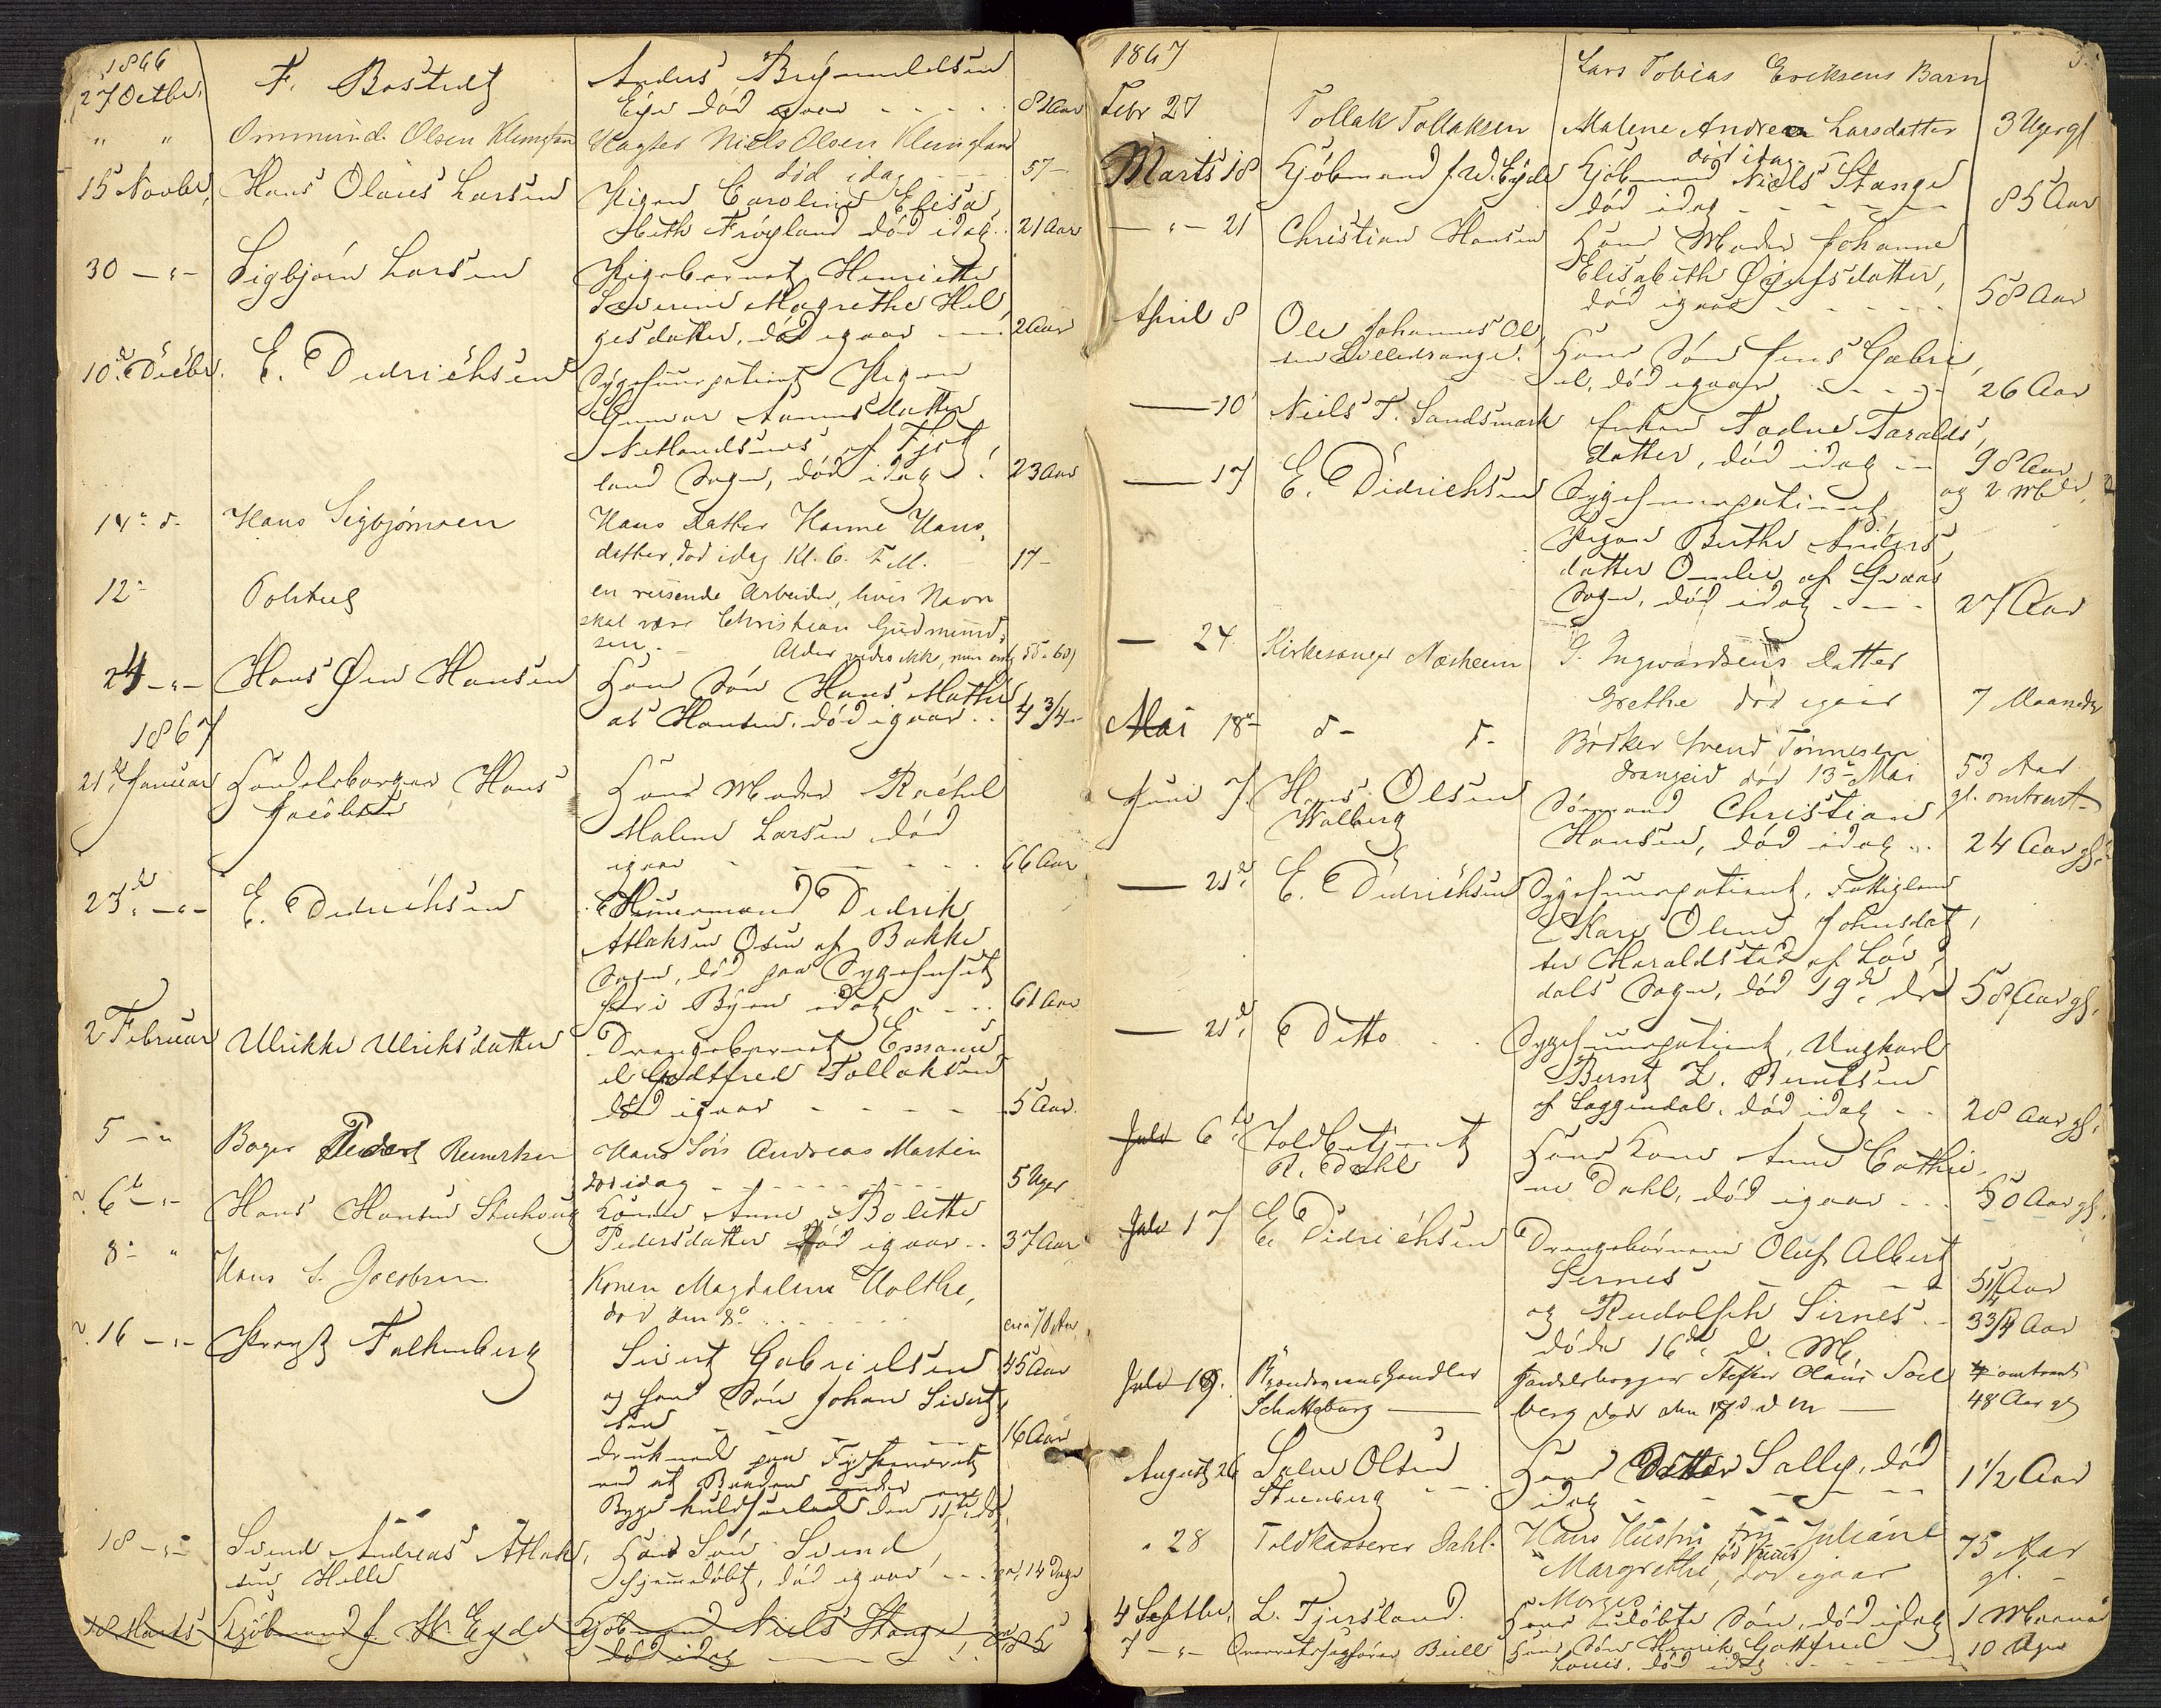 1866
27 Octbr. F. Bostedt Anders Brynnildsen
Eye død igaar - - - - - 81 Aar
" " Ommund Olsen Klungland Niels Olsen Klungland
død idag - - 57 -
15 Novbr. Hans Olaus Larsen Pigen Caroline Elisa
beth Frøyland død idag . 21 Aar
30 - " - Sigbjørn Larsen Pigebarnet Henriette
Severine Magrethe Hel
gesdatter, død igaar - - 2 Aar
10de Decbr. E. Didrichsen Sygehuuspatient Pigen
Gunvor datter
af Fjot
land Sogn, død idag . 23 Aar
14 d. Hans Sigbjørnsen Hans Datter Hanne Hans
datter, død idag Kl. 6. F.M. - 17 -
12 Politiet en reisende Arbeider, hvis Navn
skal være Christian Gudmund
sen. - Alder vides ikke,
24 - " - Hans Hansen Hans Søn Hans Mathi
as Hansen, død igaar . . 4 3/4 -
1867
21de Januar Handelsborger Hans Hans Moder Rachel
Jacobsen Malene Larsen død
igaar - - - - - 66 Aar
23de - " - E. Didrichsen Didrik
Atlaksen Øsen af Bakke
Sogn, død paa Sygehuset
her i Byen idag - - - 61 Aar
2 Februar Ulrikke Ulriksdatter Drengebarnet Emanu
el Godtfred Tollaksen
død igaar - - - - - 5 Aar.
5 - " Bager Peder Reinertsen Hans Søn Andreas Martin
død idag - - - - - - 5 Uger
6te - " - Hans Hansen Konen Anne Bolette
Pedersdatter død igaar . . 37 Aar
8 " Hans S. Jacobsen Konen Magdalena Holthe,
død den 8. . . . . . . circa 70 Aar
16 - " - Provst Falkenberg Sivert Gabrielsen 45 Aar
og hans Søn Johan Sivert
sen - - - - - 16 Aar
druknede paa
ved at Baaden
den 15de ds.
18 - " - Svend Andreas Atlak Hans Søn Svend
sen Helle hjemmedøbt, død igaar - - 14 Dage
18 Marts Kjøbmand J. W. Eyde Kjøbmand Niels Stange
død idag - - - 85
1867 Lars Tobias Eriksens Barn
Febr 27 Tollak Tollaksen Malene Andrea Larsdatter 3 Uger gl
død idag
Marts 18 Kjøbmand J. W. Eyde Kjøbmand Niels Stange
død idag - - - - - 85 Aar
- " - 21 Christian Hansen Hans Moder Johanne
Elisabeth datter,
død igaar - - - - - 58 Aar
April 8 Ole Johannes Ol
sen Lilledrange. Hans Søn Jens Gabri
el, død igaar - - - - 26 Aar
- 10 Niels T. Sandsmark Enken Tadne Taralds
datter, død idag - - 98 Aar
og 2 Mdr.
- 17 E. Didrichsen Sygehuuspatient
Pigen Berthe Anders
datter Omlie af
Sogn, død idag - - - 27 Aar
- 24 Kirkesanger Næsheim G. Ingwardsens Datter
Grethe død igaar 7 Maaneder
Mai 18 d - d - Bødker Svend Tønnesen
Drangeid død 13 Mai 53 Aar
gl. omtrent
Juni 7. Hans Olsen Sømand Christian
Walberg Hansen, død idag . . 24 Aar gl.
- 21de E. Didrichsen Sygehuuspatient, Fattiglem
Kari Oline Johnsdat
ter Haraldstad af
dals Sogn, død 19de ds 58 Aar gl.
- 21de Ditto Sygehuuspatient, Ungkarl
Bernt Z. Berntsen
af Loggendal, død idag - - 28 Aar gl.
Juli 6te Toldbetjent Hans Kone Anne Cathri
R. Dahl ne Dahl, død igaar . . . 50 Aar gl.
Juli 17 E Didrichsen Drengebørnene Oluf Albert
Sirnes - - 5 1/4 Aar
og Rudolph Sirnes . - 3 3/4 Aar
døde 16de d. M.
Juli 19. Handelsborger Olaus Soel omtrent
berg død den 17d d M - 48 Aar gl
August 26 Salve Olsen Hans Datter Sally, død
Steenberg - - idag - - - - - 1 1/2 Aar
" 28 Toldkasserer Dahl. Hans Hustru Juliane
Margrethe, død igaar 75 Aar
gl. -
4 Septbr. L. Tjersland. Morges
Hans udøbte Søn, død idag 1 Maaned
7 - " - Overretssagfører Bull Hans Søn Henrik Gottfred 10 Uger
Louis. død idag - - - -